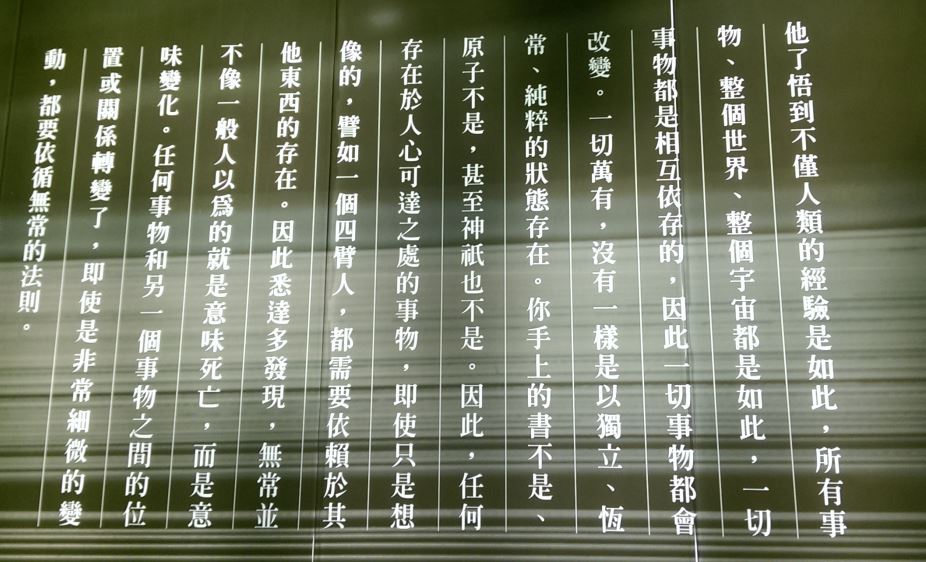 他了悟到不僅人類的經驗是如此，所有事
物、整個世界、整個宇宙都是如此，一切
事物都是相互依存的，因此一切事物都會
改變。一切萬有，沒有一樣是以獨立、恆
常、純粹的狀態存在。你手上的書不是、
原子不是，甚至神祇也不是。因此，任何
存在於人心可達之處的事物，即使只是想
像的，譬如一個四臂人，都需要依賴於其
他東西的存在。因此悉達多發現，無常並
不像一般人以爲的就是意味死亡，而是意
味變化。任何事物和另一個事物之間的位
置或關係轉變了，即使是非常細微的變
動，都要依循無常的法則。